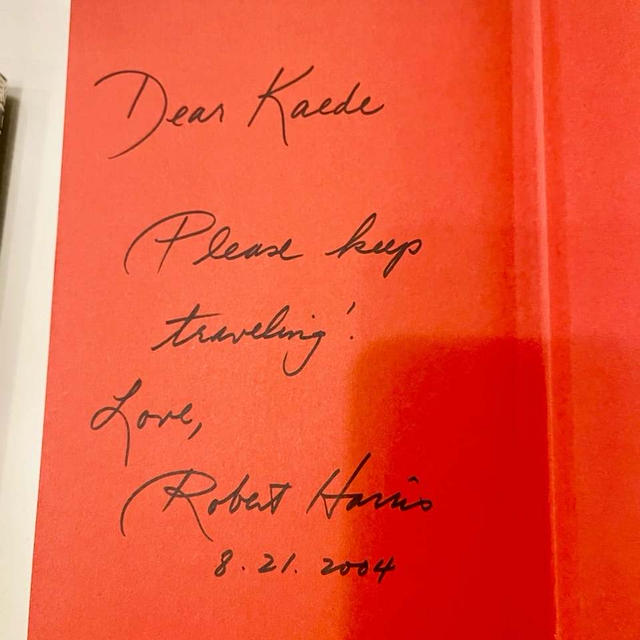 Dear Kaede
Please keep
traveling!
Love,
Robert Harris
8.21.2004